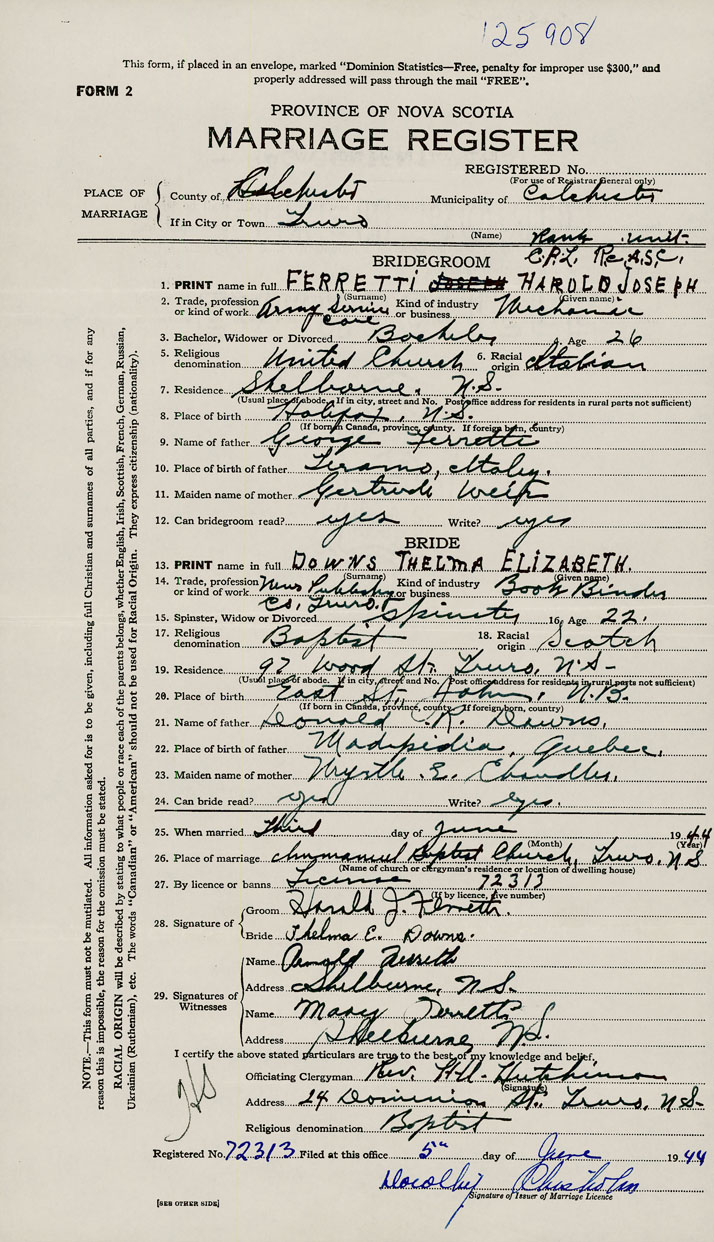 125908
This form, if placed in an envelope, marked "Dominion Statistics—Free, penalty for improper use $300," and
properly addressed will pass through the mail "FREE".
FORM 2
PROVINCE OF NOVA SCOTIA
MARRIAGE REGISTER
REGISTERED No.
(For use of Registrar General only)
PLACE OF MARRIAGE
County of Colchester Municipality of Colchester
If in City or Town Truro
(Name) Rank unit
BRIDEGROOM CPL. R.C.A.S.C.
1. PRINT name in full FERRETTI JOSEPH HAROLD JOSEPH
(Surname) (Given name)
2. Trade, profession or kind of work Army Service Core Kind of industry or business Mechanic
3. Bachelor, Widower or Divorced Bachelor 4. Age 26
5. Religious denomination United Church 6. Racial origin Italian
7. Residence Shelburne, N.S.
(Usual place of abode. If in city, street and No. Post office address for residents in rural parts not sufficient)
8. Place of birth Halifax, N.S.
(If born in Canada, province, county. If foreign born, country)
9. Name of father George Ferretti
10. Place of birth of father Teramo, Italy.
11. Maiden name of mother Gertrude
12. Can bridegroom read? yes Write? yes
BRIDE
13. PRINT name in full DOWNS THELMA ELIZABETH.
(Surname) (Given name)
14. Trade, profession or kind of work News Publishing Co., Truro. Kind of industry or business Book Binder
15. Spinster, Widow or Divorced Spinster 16. Age 22.
17. Religious denomination Baptist 18. Racial origin Scotch
19. Residence 97 Wood St. Truro, N.S-
(Usual place of abode. If in city, street and No. Post office address for residents in rural parts not sufficient)
20. Place of birth East St. John, N.B.
(If born in Canada, province, county. If foreign born, country)
21. Name of father Donald R. Downs.
22. Place of birth of father Madipidia, Quebec.
23. Maiden name of mother Myrtle E. Chandler.
24. Can bride read? yes Write? yes.
25. When married Third day of June 1944
(Month) (Year)
26. Place of marriage Immanuel Baptist Church, Truro, N.S
(Name of church or clergyman's residence or location of dwelling house)
27. By licence or banns License 72313
(If by licence, give number)
28. Signature of
Groom Harold J. Ferretti
Bride Thelma E. Downs.
29. Signatures of Witnesses
Name Arnold Ferretti
Address Shelburne, N.S.
Name Mary Ferretti
Address Shelburne, N.S.
I certify the above stated particulars are true to the best of my knowledge and belief.
Officiating Clergyman Rev. H.A. Hutchinson
(Signature)
Address 24 Dominion St. Truro, N.S-
Religious denomination Baptist
Registered No. 72313 Filed at this office 5th day of June 1944
Dorothy Chisholm
Signature of Issuer of Marriage Licence
[SEE OTHER SIDE]
NOTE.—This form must not be mutilated. All information asked for is to be given, including full Christian and surnames of all parties, and if for any
reason this is impossible, the reason for the omission must be stated.
RACIAL ORIGIN will be described by stating to what people or race each of the parents belongs, whether English, Irish, Scottish, French, German, Russian,
Ukrainian (Ruthenian), etc. The words "Canadian" or "American" should not be used for Racial Origin. They express citizenship (nationality).